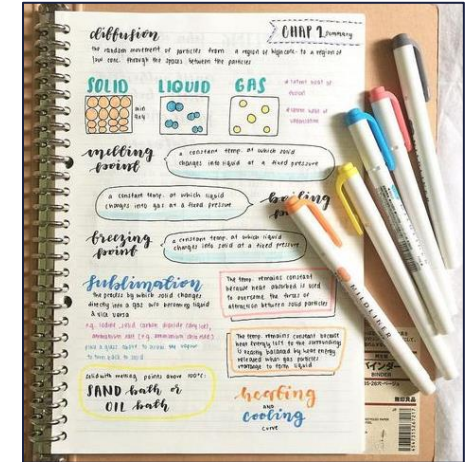 diffusion
CHAP 1 summary
the random movement of particles from a region of high conc. to a region of
low conc. through the spaces between the particles
SOLID LIQUID GAS
* latent heat of
fusion
* latent heat of
vaporization
melting
point
a constant temp. at which solid
changes into liquid at a fixed pressure
a constant temp. at which liquid
changes into gas at a fixed pressure
boiling
freezing
point
a constant temp. at which liquid
changes into solid at a fixed pressure
sublimation
the process by which solid changes
directly into a gas w/o becoming liquid
& vice versa
e.g. iodine, solid carbon dioxide (dry ice),
ammonium salt (e.g. ammonium chloride)
place a glass above to allow the vapour
to turn back to solid
solid with melting points above 100°C:
SAND bath or
OIL bath
The temp. remains constant
because heat absorbed is used
to overcome the forces of
attraction between solid particles
The temp. remains constant because
heat energy lost to the surroundings
is exactly balanced by heat energy
released when gas particles
rearrange to form liquid
heating
AND
cooling
curve
MILDLINER
バインダー
無印良品